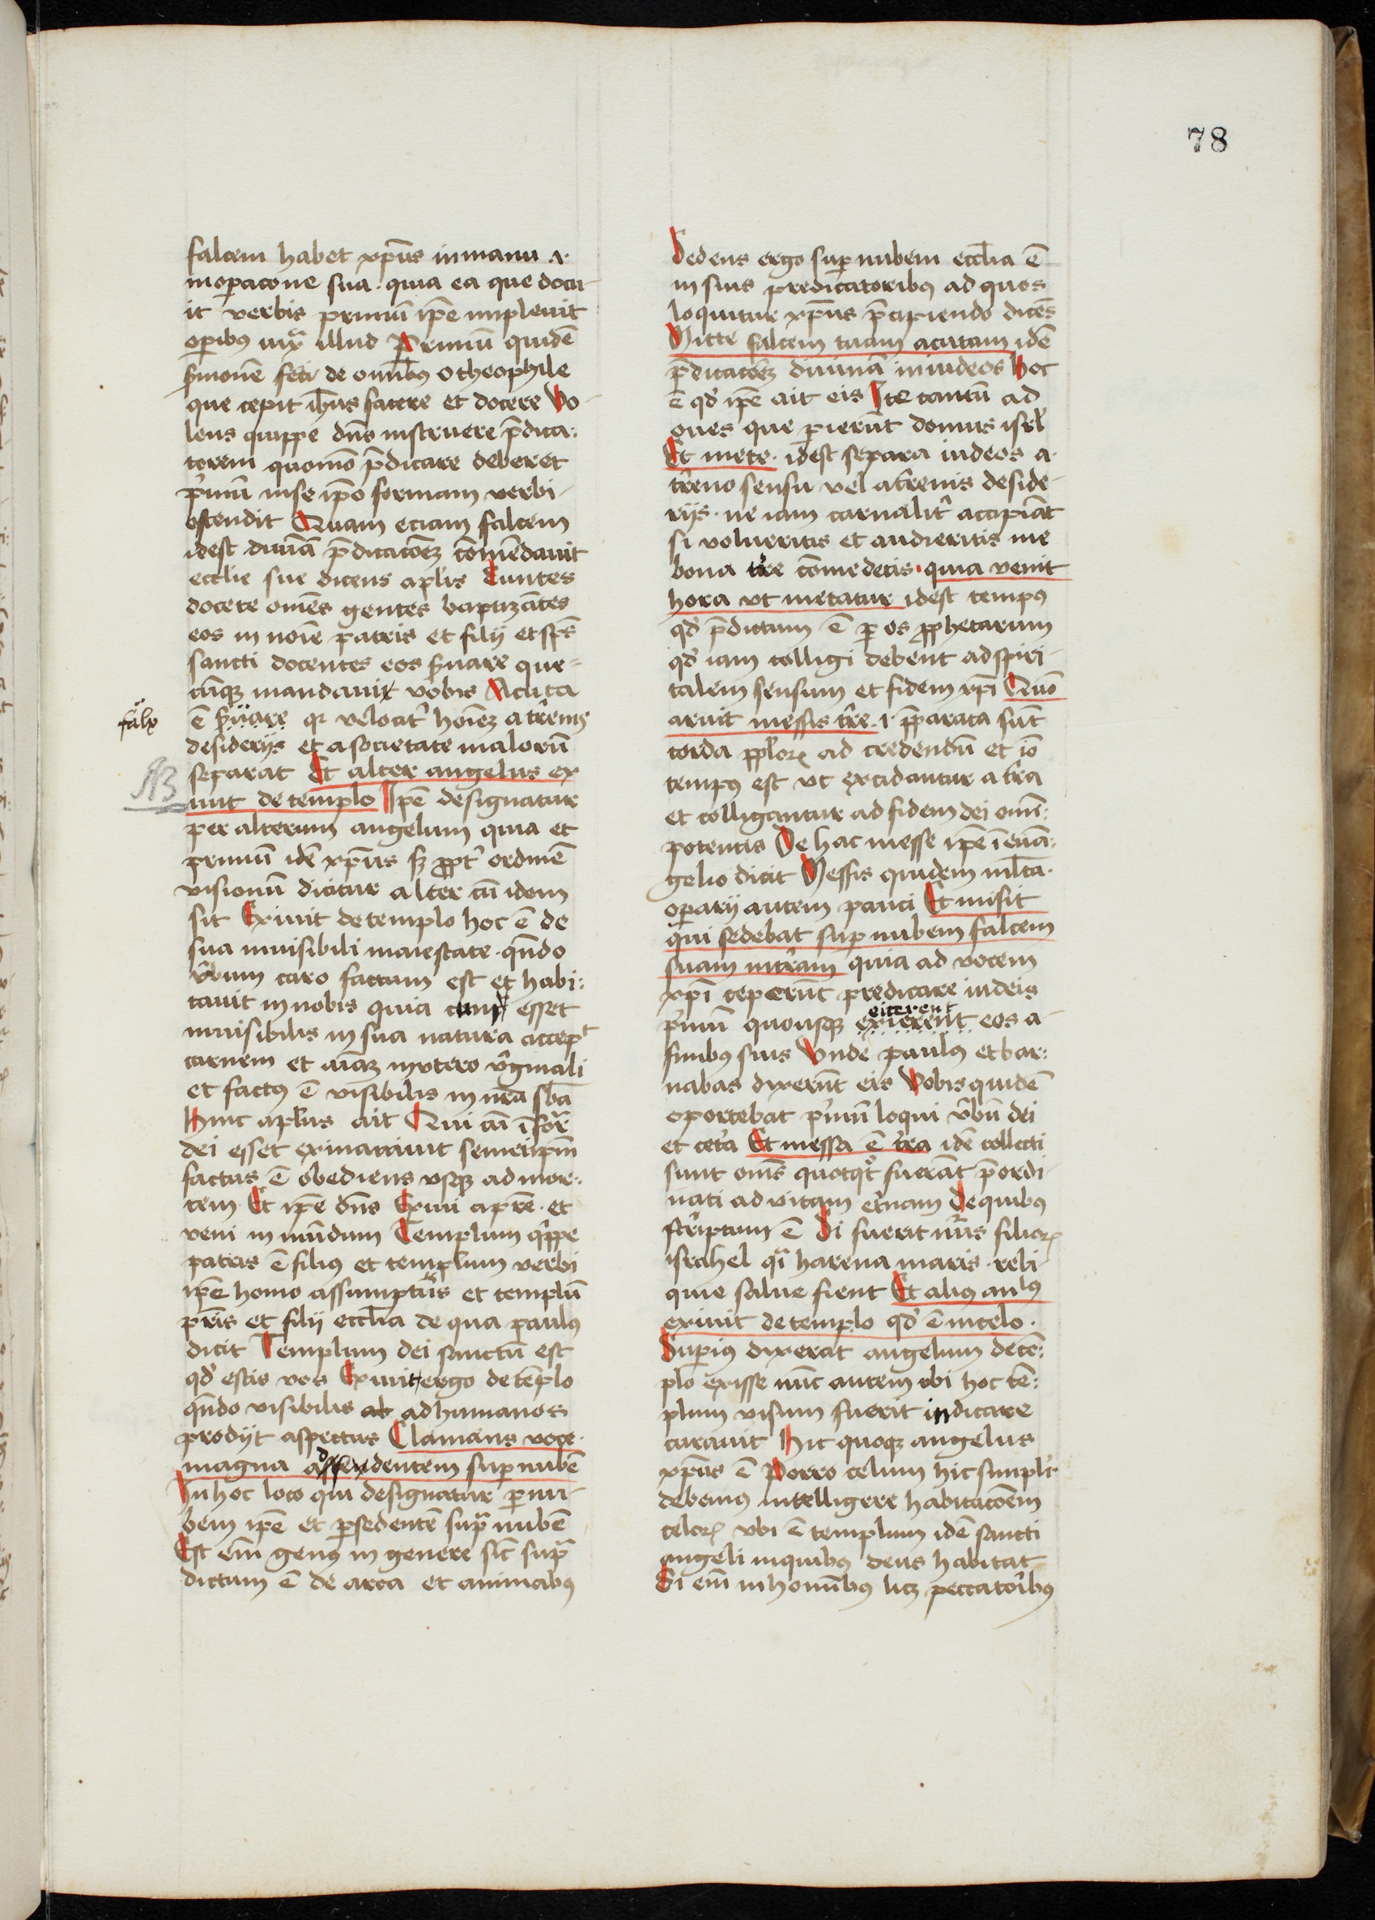 78
falcem habet xp̄us in manu .i.
in op̄acōne sua . quia ea que docu-
it verbis primū ip̄e impleuit
op̄ibus iuxͣ illud Primū quidē
s̄monē feci de om̄ibus o theophile
que cepit ih̄us facere et docere Vo-
lens quippe dn̄s instruere p̄dica-
torem quomō p̄dicare deberet
p̍mū in se ip̄o formam verbi
ostendit Quam eciam falcem
idest diuinā p̄dicacōeꝫ cōmēdauit
ecclīe sue dicens aplīs Euntes
docete om̄es gentes baptizātes
eos in noīe patris et filij et sp̄s
sancti docentes eos s̄uare que-
cūqꝫ mandaui vobis Acuta
falx
ē s̄uare qꝛ velocit̍ hoīeꝫ a t̍renis
desiderijs et a societate malorū
separat Et alter angelus ex
NB
iuit de templo Ip̄e designatur
per alterum angelum quia et
primū idē xp̄us sꝫ ꝓpt̍ ordinē
visionū dicitur alter cū idem
sit Exiuit de templo hoc ē de
sua inuisibili maiestate . qn̄do
v̍bum caro factum est et habi-
tauit in nobis quia cum esset
inuisibilis in sua natura accepᵗ
carnem et aīaꝫ in vtero v̍ginali
et factꝰ ē visibilis in nr̄a sb̄a
Hinc aplūs ait Qui cū ī forͣ
dei esset exinaniuit semetip̄m
factus ē obediens vsqꝫ ad mor-
tem Et ip̄e dn̄s Exiui a pr̄e . et
veni in mūdum Templum q̍ppe
patris ē filiꝰ et templum verbi
ip̄e homo assumptus et templū
pr̄is et filij eccl̄ia de qua paulꝰ
dicit Templum dei sanctū est
qd̍ estis vos Exiuit ergo de tēplo
qn̄do visibilis ab ad humanos
prodijt aspectus Clamans voce
magna ad sedentem sup nubē
In hoc loco qui designatur ꝑ nu-
bem ip̄e et ꝑ sedentē supͣ nubē
Est em̄ genꝰ in genere sic̄ supͣ
dictum ē de arca et animabꝰ
Sedens ergo sup nubem eccl̄ia ē
in suis predicatoribꝰ ad quos
loquitur xp̄us p̄cipiendo dicēs
Mitte falcem tuam acutam idē
p̄dicacōeꝫ diuinā in iudeos Hoc
ē qd̍ ip̄e ait eis Ite tantū ad
oues que ꝑierūt domus isrl̄
Et mete . idest separa iudeos a
t̍reno sensu vel a t̍renis deside-
rijs . ne iam carnalit̍ accipiāt
si volueritis et audieritis me
bona t̍re cōmedetis . quia venit
hora vt metatur idest tempꝰ
qd̍ p̄dictum ē ꝑ os ꝓphetarum
qd̍ iam colligi debent ad spiri-
talem sensum et fidem xp̄i Qm̄
aruit messis t̍re .i. p̄parata sūt
corda ppl̄oꝝ ad credendū et iō
tempꝰ est vt excidantur a t̍ra
et colligantur ad fidem dei omī-
potentis De hac messe ip̄e ī euā-
gelio dicit Messis quidem ml̄ta
operarij autem pauci Et misit
qui sedebat sup nubem falcem
suam in t̍ram quia ad vocem
xp̄i ceperūt predicare iudeis
p̍mū quousqꝫ exierent eos a
eicerent
finibus suis Vnde paulꝰ et bar-
nabas dixerūt eis Vobis quidē
oportebat p̍mū loqui v̍bū dei
et cet̍a Et messa ē t̍ra idē collecti
sunt om̄s quotqt̍ fuerāt p̄ordi-
nati ad vitam et̍nam De quibus
scriptum ē Si fuerit nūs filioꝝ
israhel qͣi harena maris . reli-
quie salue fient Et aliꝰ an̄lꝰ
exiuit de templo qd̍ ē in celo .
Supiꝰ dixerat angelum de tē-
plo exisse nūc autem vbi hoc tē-
plum visum fuerit indicare
curauit Hic quoqꝫ angelus
xp̄us ē Porro celum hic simpl̍r
debemꝰ intelligere habitacōem
celoꝝ vbi ē templum idē sancti
angeli in quibꝰ deus habitat
Si em̄ in hominībꝰ licꝫ peccatoribꝰ